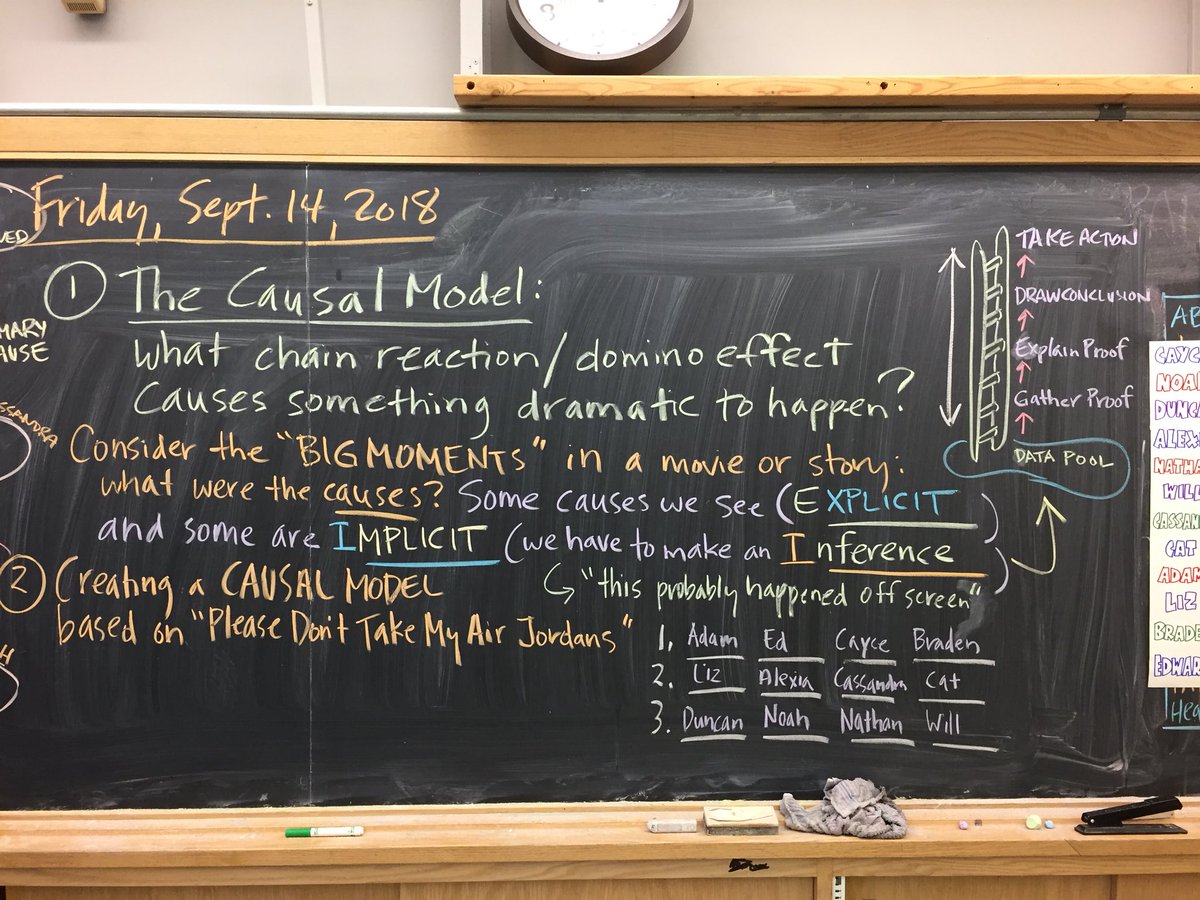 Friday, Sept. 14, 2018
① The Causal Model:
what chain reaction/domino effect
causes something dramatic to happen?
Consider the "BIG MOMENTS" in a movie or story:
what were the causes? Some causes we see (EXPLICIT)
and some are IMPLICIT (we have to make an Inference)
↳ "this probably happened off screen"
② Creating a CAUSAL MODEL
based on "Please Don't Take My Air Jordans"
1. Adam Ed Cayce Braden
2. Liz Alexia Cassandra Cat
3. Duncan Noah Nathan Will
TAKE ACTION
DRAW CONCLUSION
Explain Proof
Gather Proof
DATA POOL
CAYC
NOAH
DUNCA
ALEXI
NATHA
WILL
CASSAN
CAT
ADAM
LIZ
BRADE
EDWAR
Hea